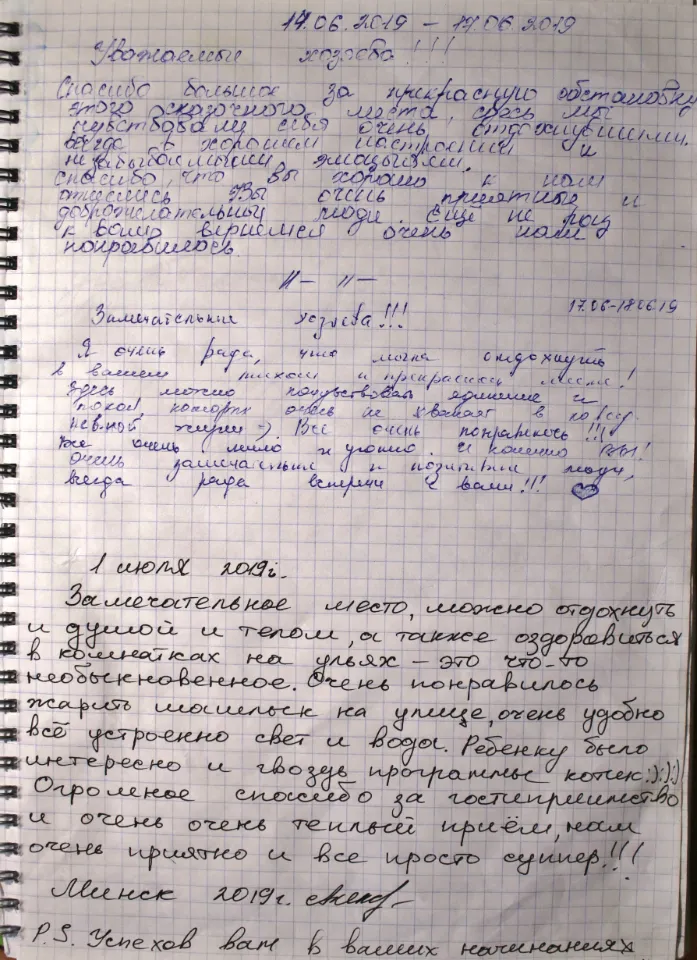 17.06.2019 – 17.06.2019
Уважаемые хозяева!!!
Спасибо большое за прекрасную обстановку
этого сказочного места, здесь мы
чувствовали себя очень отдохнувшими.
Везде в хорошем настроении и
незабываемыми эмоциями.
Спасибо, что вы хорошо к нам
отнеслись. Вы очень приятные и
доброжелательные люди. Ещё не раз
к вам вернемся очень нам
понравилось.
–//– –//–
17.06-18.06.19
Замечательные хозяева!!!
Я очень рада, что могла отдохнуть
в вашем тихом и прекрасном месте!
Здесь можно почувствовать единение и
покой, которых очень не хватает в повсед-
невной жизни. Все очень понравилось!!!
Все очень мило и уютно. И конечно Вы!
очень замечательные и позитивные люди,
всегда рада встречи с вами!!!
1 июля 2019г.
Замечательное место, можно отдохнуть
и душой и телом, а также оздоровиться
в комнатках на ульях – это что-то
необыкновенное. Очень понравилось
жарить шашлык на улице, очень удобно
всё устроенно свет и вода. Ребенку было
интересно и гвоздь программы котик:):):)
Огромное спасибо за гостеприимство
и очень очень теплый приём, нам
очень приятно и все просто суппер!!!
Минск 2019г.
P.S. Успехов вам в ваших начинаниях